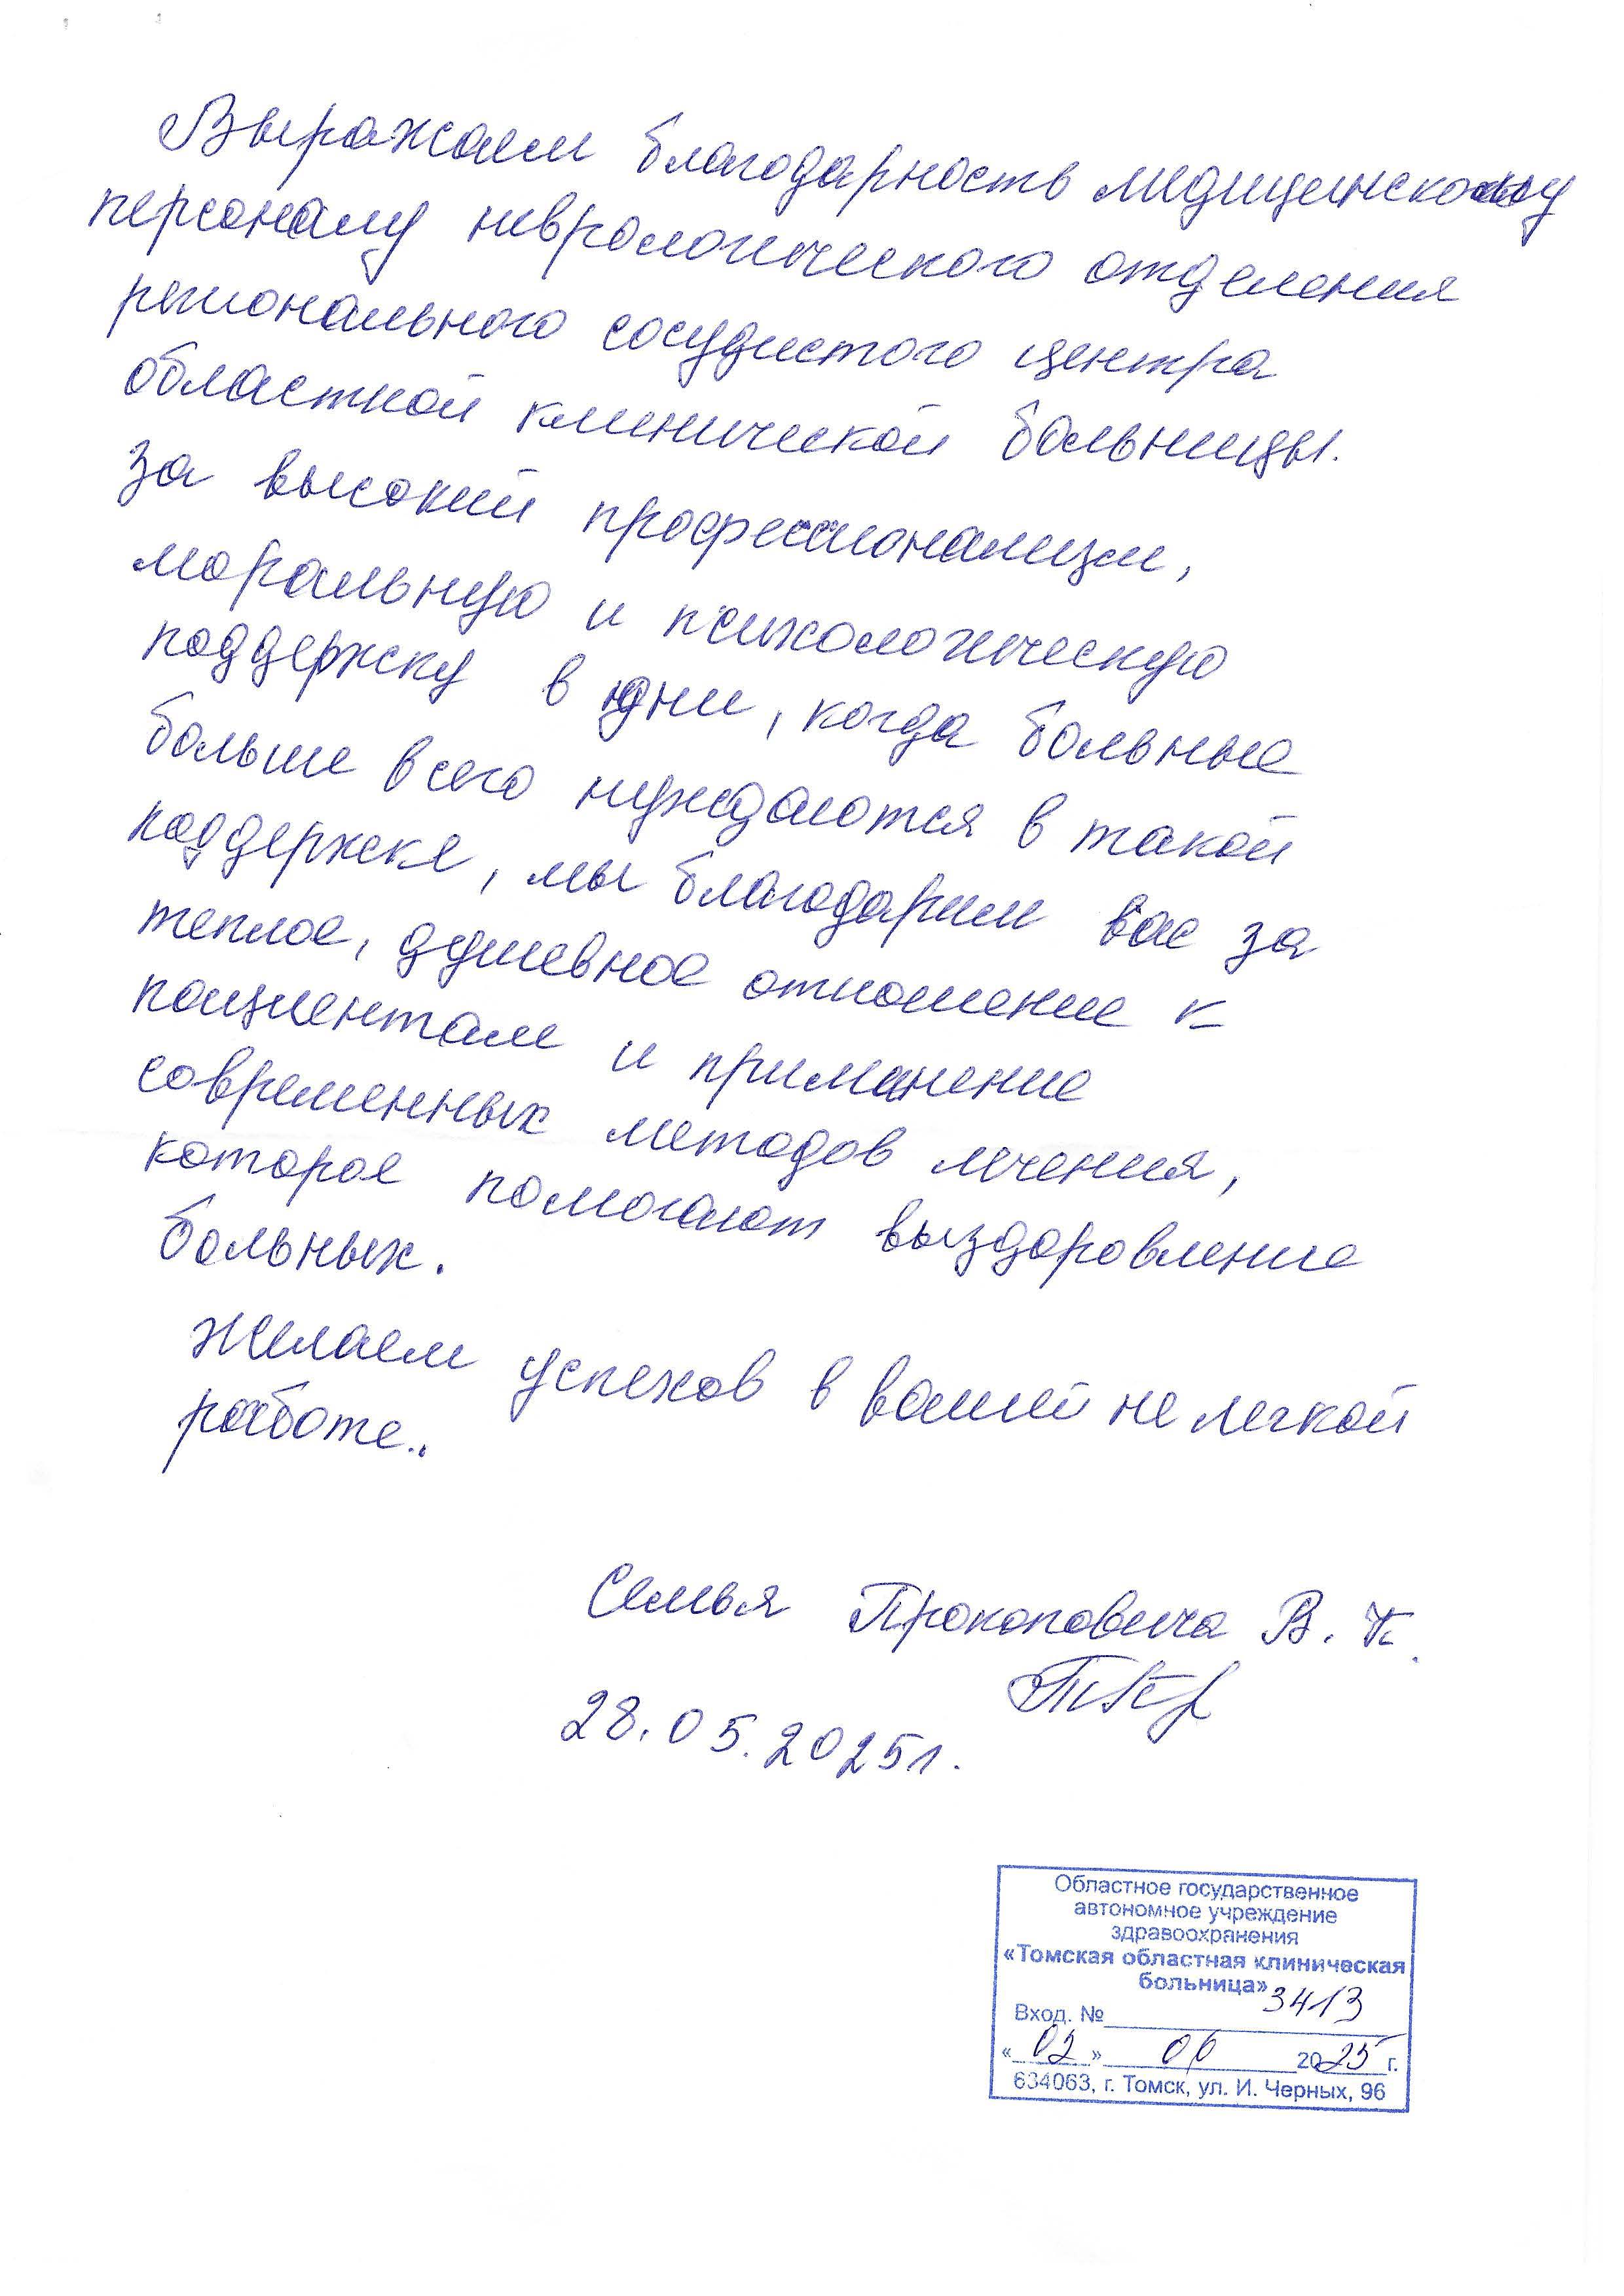 Выражаем благодарность медицинскому
персоналу неврологического отделения
регионального сосудистого центра
областной клинической больницы.
за высокий профессионализм,
моральную и психологическую
поддержку в дни, когда больные
больше всего нуждаются в такой
поддержке, мы благодарим вас за
теплое, душевное отношение к
пациентам и применение
современных методов лечения,
которое помогают выздоровление
больных.
Желаем успехов в вашей не легкой
работе..
Семья Прокоповича В. К.
28.05.2025г.
Областное государственное
автономное учреждение
здравоохранения
«Томская областная клиническая
больница»
Вход. № 3413
«02» 06 2025 г.
634063, г. Томск, ул. И. Черных, 96